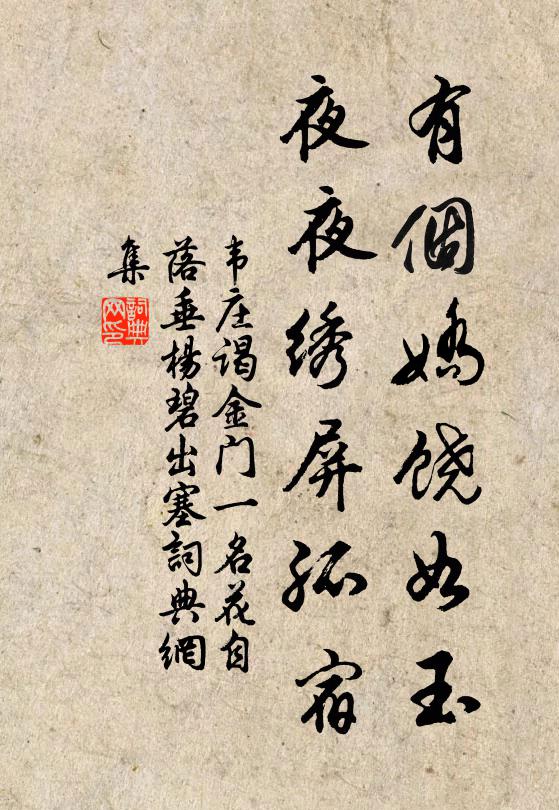 有個嬌饶如玉
夜夜绣屏孤宿
韦庄谒金门一名花自
落垂楊碧出塞詞典網
集
詞典网印